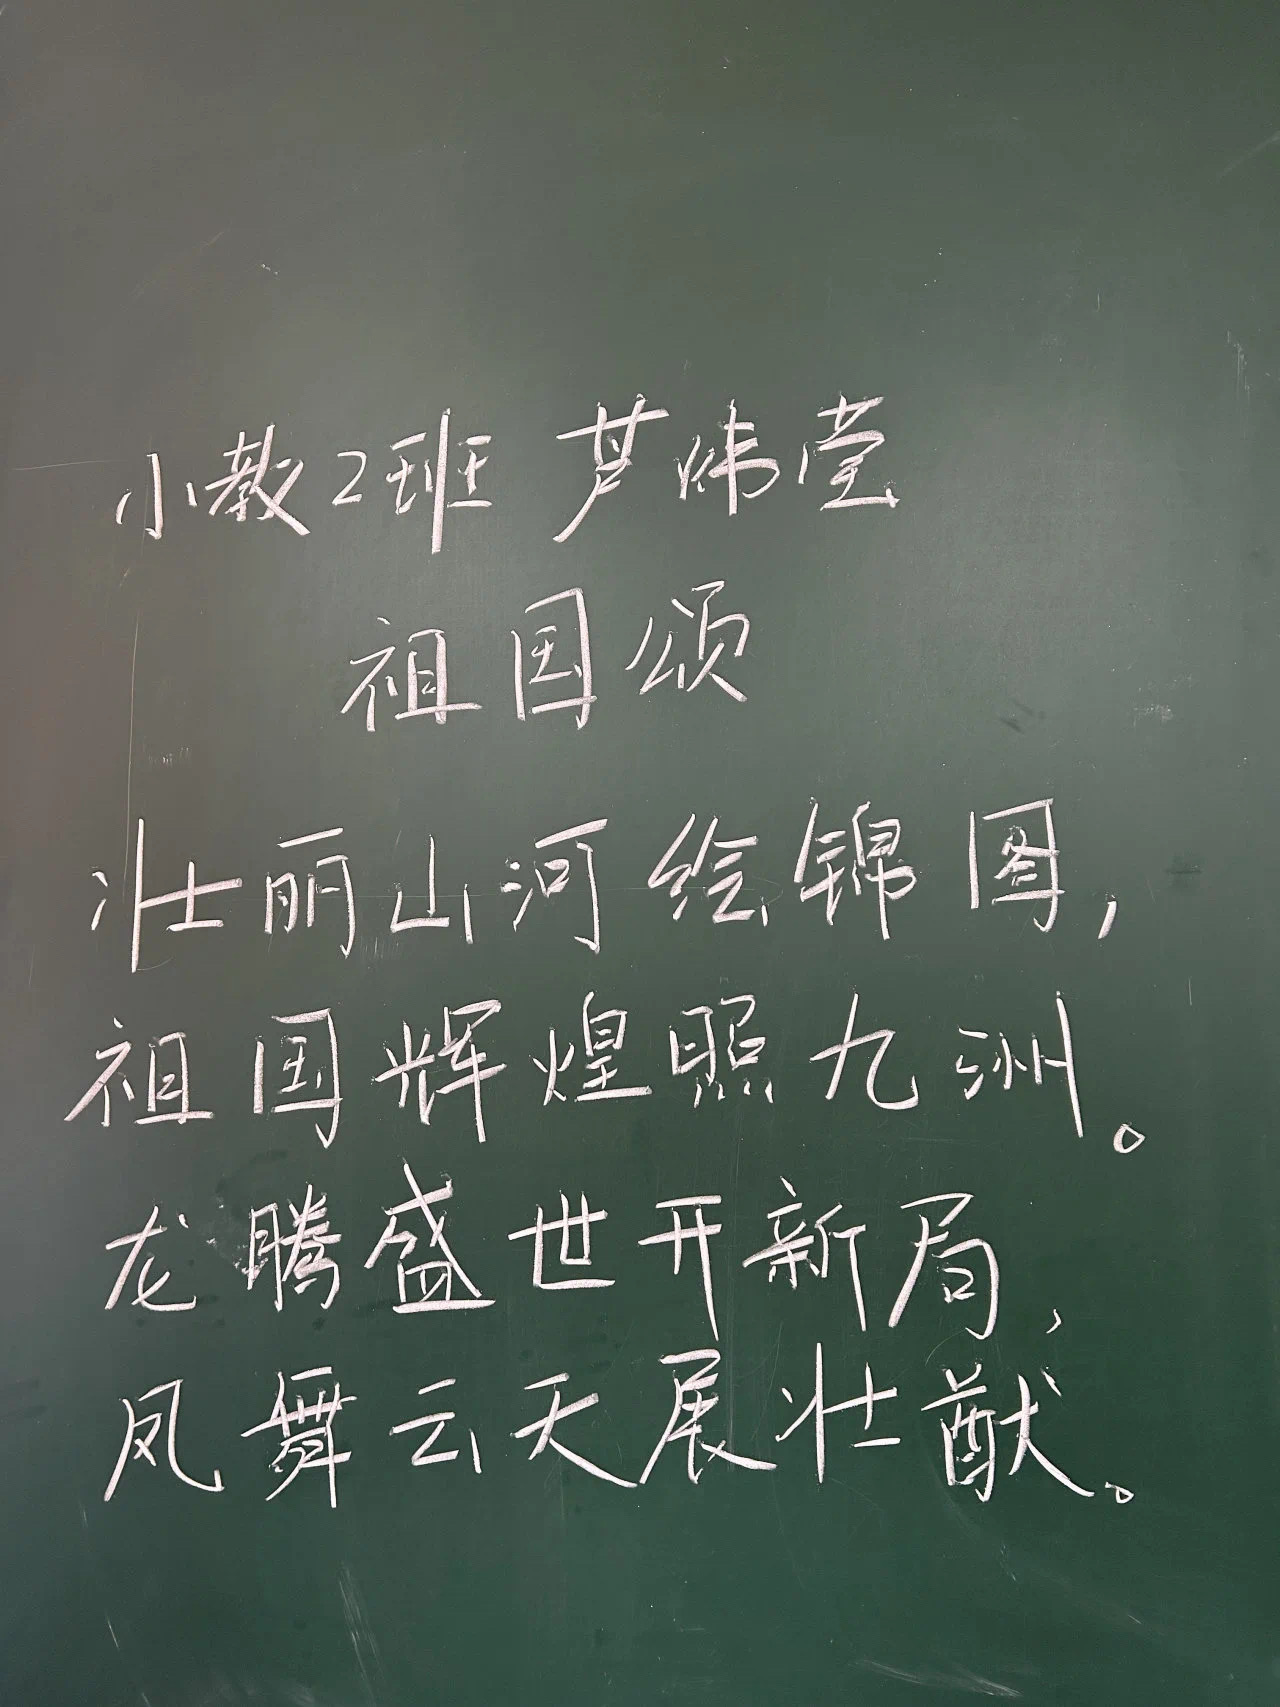 小教2班 芦炜莹
祖国颂
壮丽山河绘锦图,
祖国辉煌照九洲。
龙腾盛世开新局,
凤舞云天展壮猷。